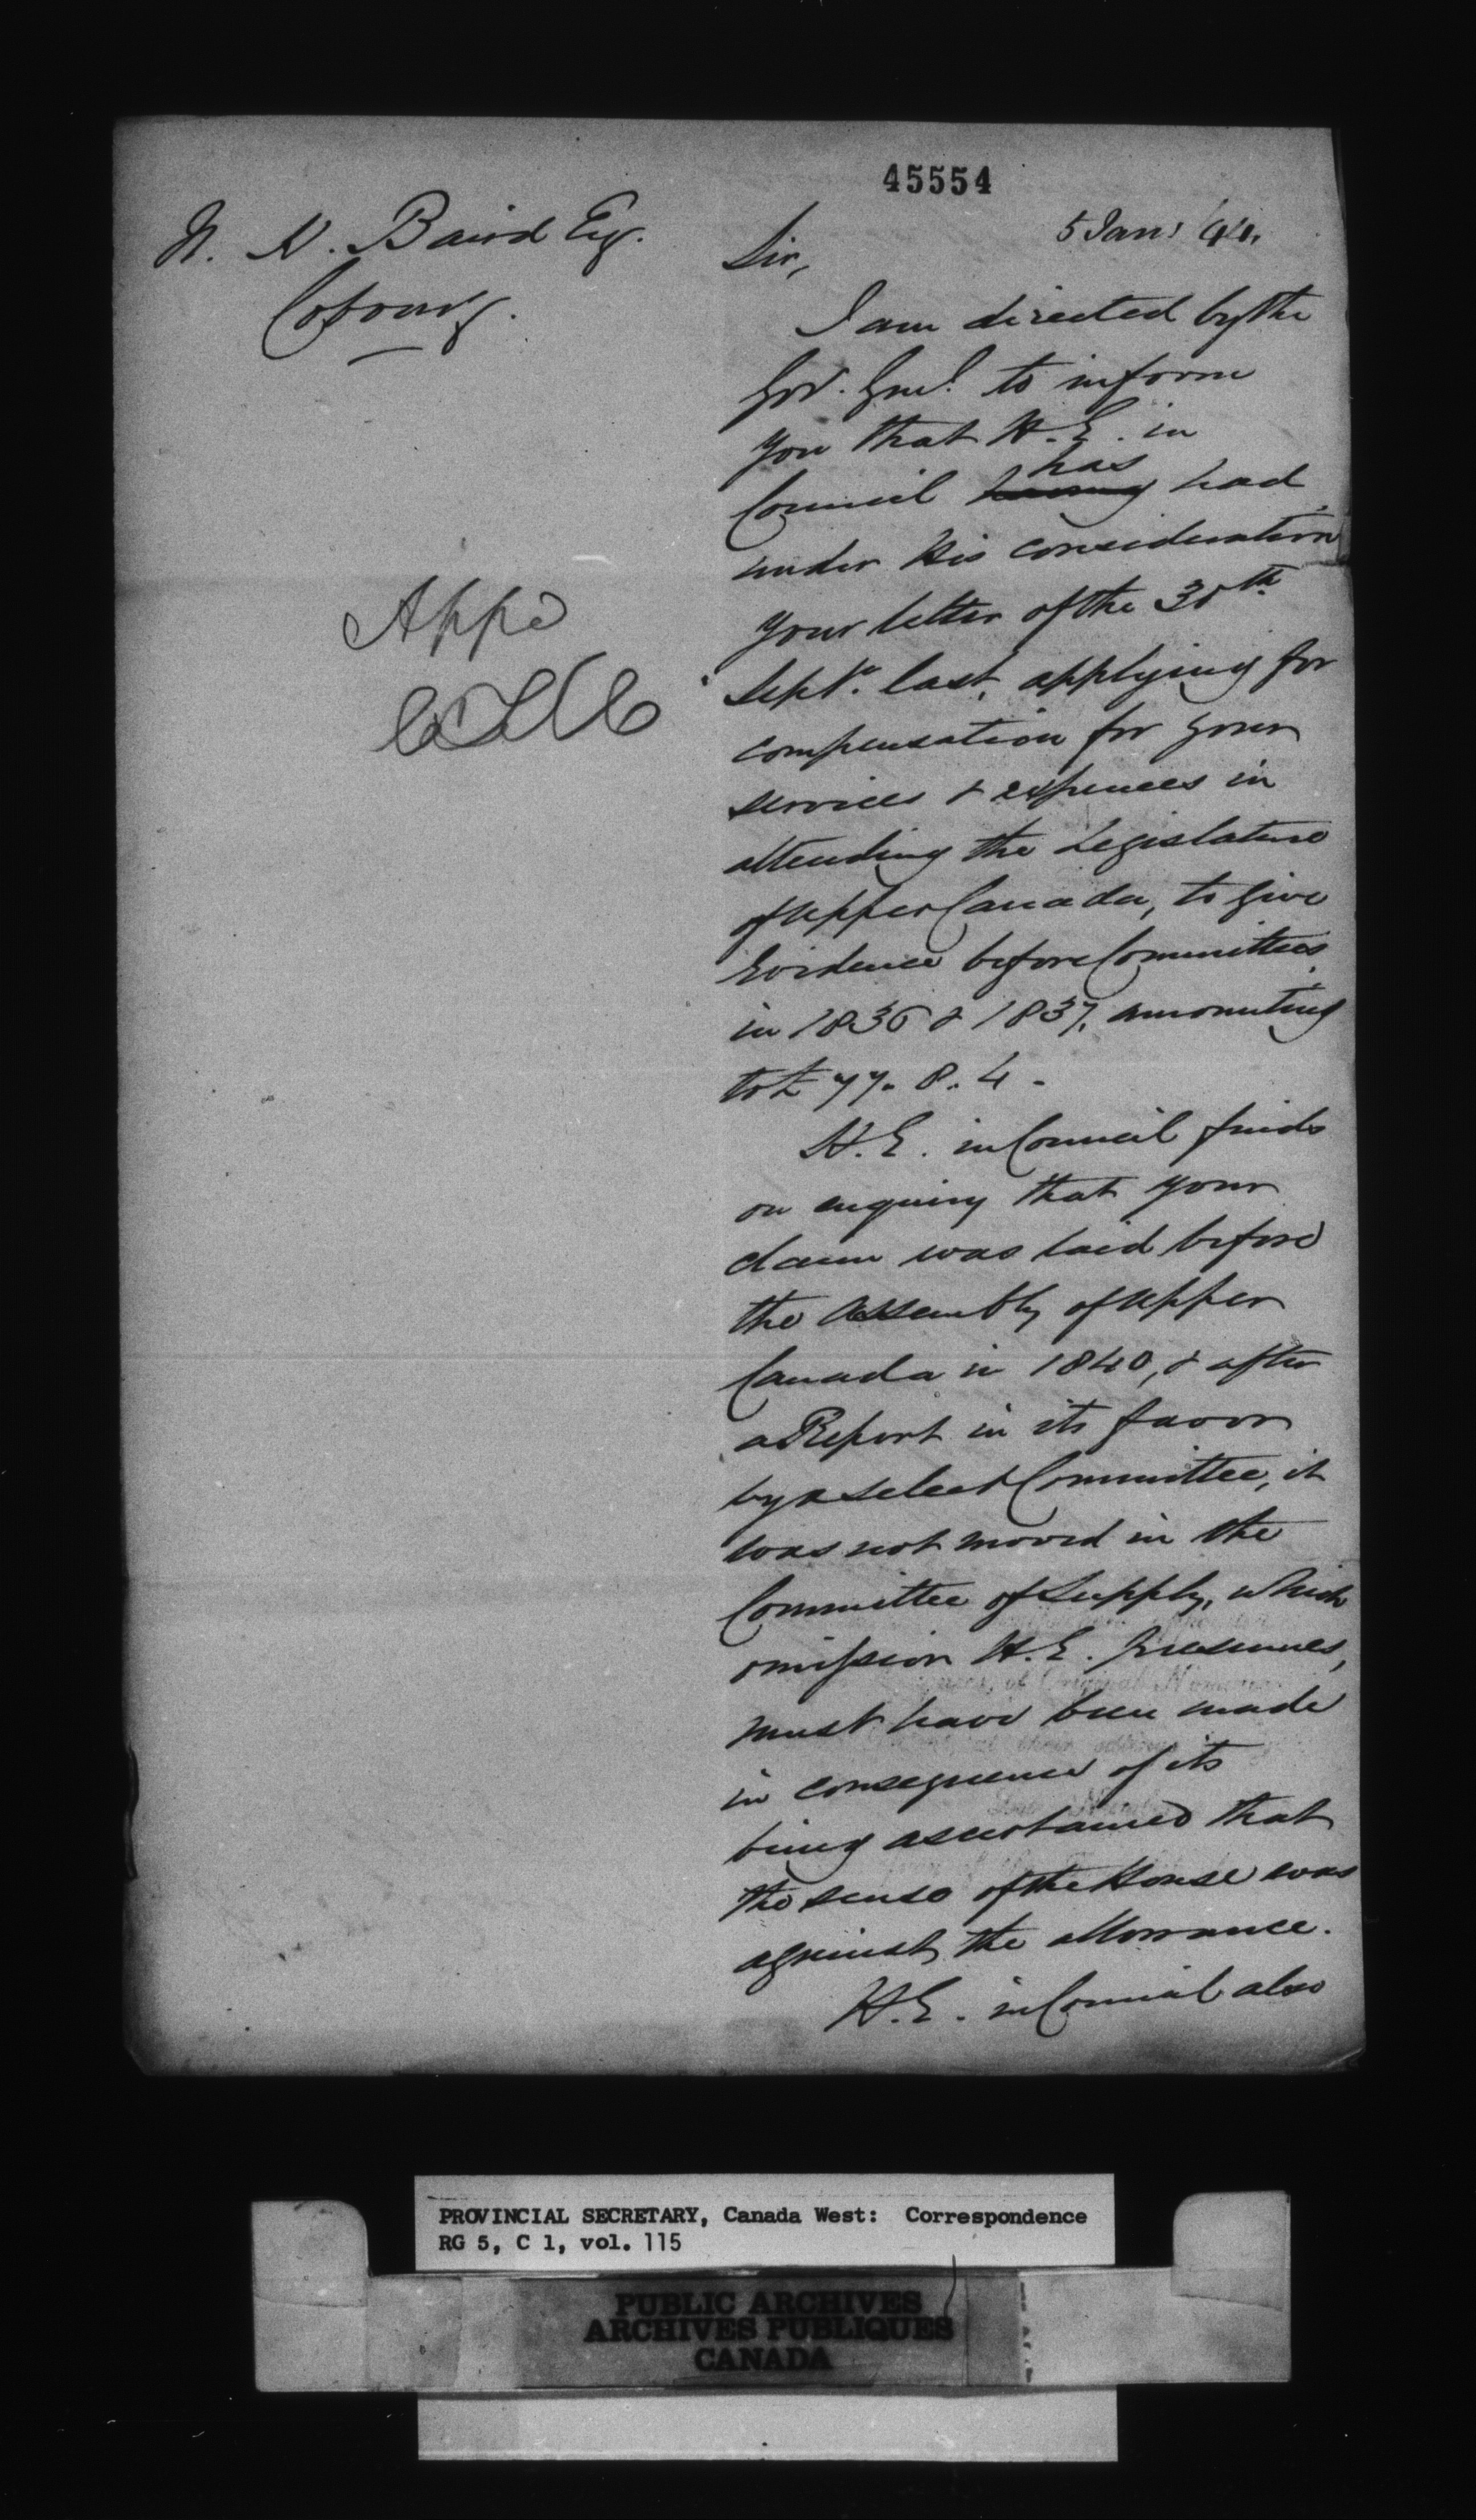 45554
N. H. Baird Esq.
Cobourg.
5 Jany 44.
Sir,
I am directed by the
Gov. Genl. to inform
you that H. E. in
has
Council having had
under His consideration
your letter of the 30th
Septr. last, applying for
compensation for your
services & expences in
attending the Legislature
of Upper Canada, to give
Evidence before Committees
in 1836 & 1837, amounting
to £77. 8. 4 -
H. E. in Council finds
on enquiry that your
claim was laid before
the Assembly of Upper
Canada in 1840, & after
a Report in its favor
by a Select Committee, it
was not moved in the
Committee of Supply, which
omission H. E. presumes,
must have been made
in consequence of its
being ascertained that
the sense of the House was
against the allowance.
H. E. in Council also
Appd
PROVINCIAL SECRETARY, Canada West: Correspondence
RG 5, C 1, vol. 115
PUBLIC ARCHIVES
ARCHIVES PUBLIQUES
CANADA